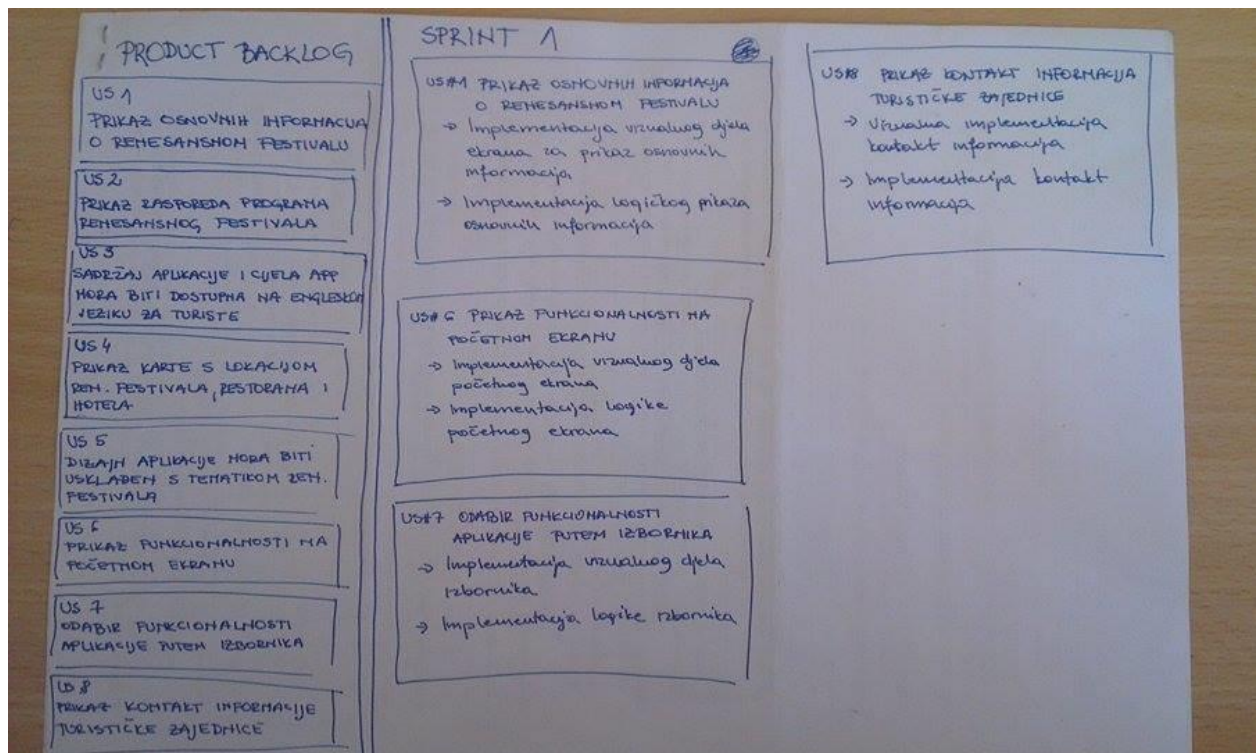 PRODUCT BACKLOG
US 1
PRIKAZ OSNOVNIH INFORMACIJA
O RENESANSNOM FESTIVALU
US 2
PRIKAZ RASPOREDA PROGRAMA
RENESANSNOG FESTIVALA
US 3
SADRŽAJ APLIKACIJE I CIJELA APP
MORA BITI DOSTUPNA NA ENGLESKOM
JEZIKU ZA TURISTE
US 4
PRIKAZ KARTE S LOKACIJOM
REN. FESTIVALA, RESTORANA I
HOTELA
US 5
DIZAJN APLIKACIJE MORA BITI
USKLAĐEN S TEMATIKOM REN.
FESTIVALA
US 6
PRIKAZ FUNKCIONALNOSTI NA
POČETNOM EKRANU
US 7
ODABIR FUNKCIONALNOSTI
APLIKACIJE PUTEM IZBORNIKA
US 8
PRIKAZ KONTAKT INFORMACIJE
TURISTIČKE ZAJEDNICE
SPRINT 1
US#1 PRIKAZ OSNOVNIH INFORMACIJA
O RENESANSNOM FESTIVALU
→ Implementacija vizualnog djela
ekrana za prikaz osnovnih
informacija
→ Implementacija logičkog prikaza
osnovnih informacija
US#6 PRIKAZ FUNKCIONALNOSTI NA
POČETNOM EKRANU
→ Implementacija vizualnog djela
početnog ekrana
→ Implementacija logike
početnog ekrana
US#7 ODABIR FUNKCIONALNOSTI
APLIKACIJE PUTEM IZBORNIKA
→ Implementacija vizualnog djela
izbornika
→ Implementacija logike izbornika
US#8 PRIKAZ KONTAKT INFORMACIJA
TURISTIČKE ZAJEDNICE
→ Vizualna implementacija
kontakt informacija
→ Implementacija kontakt
informacija